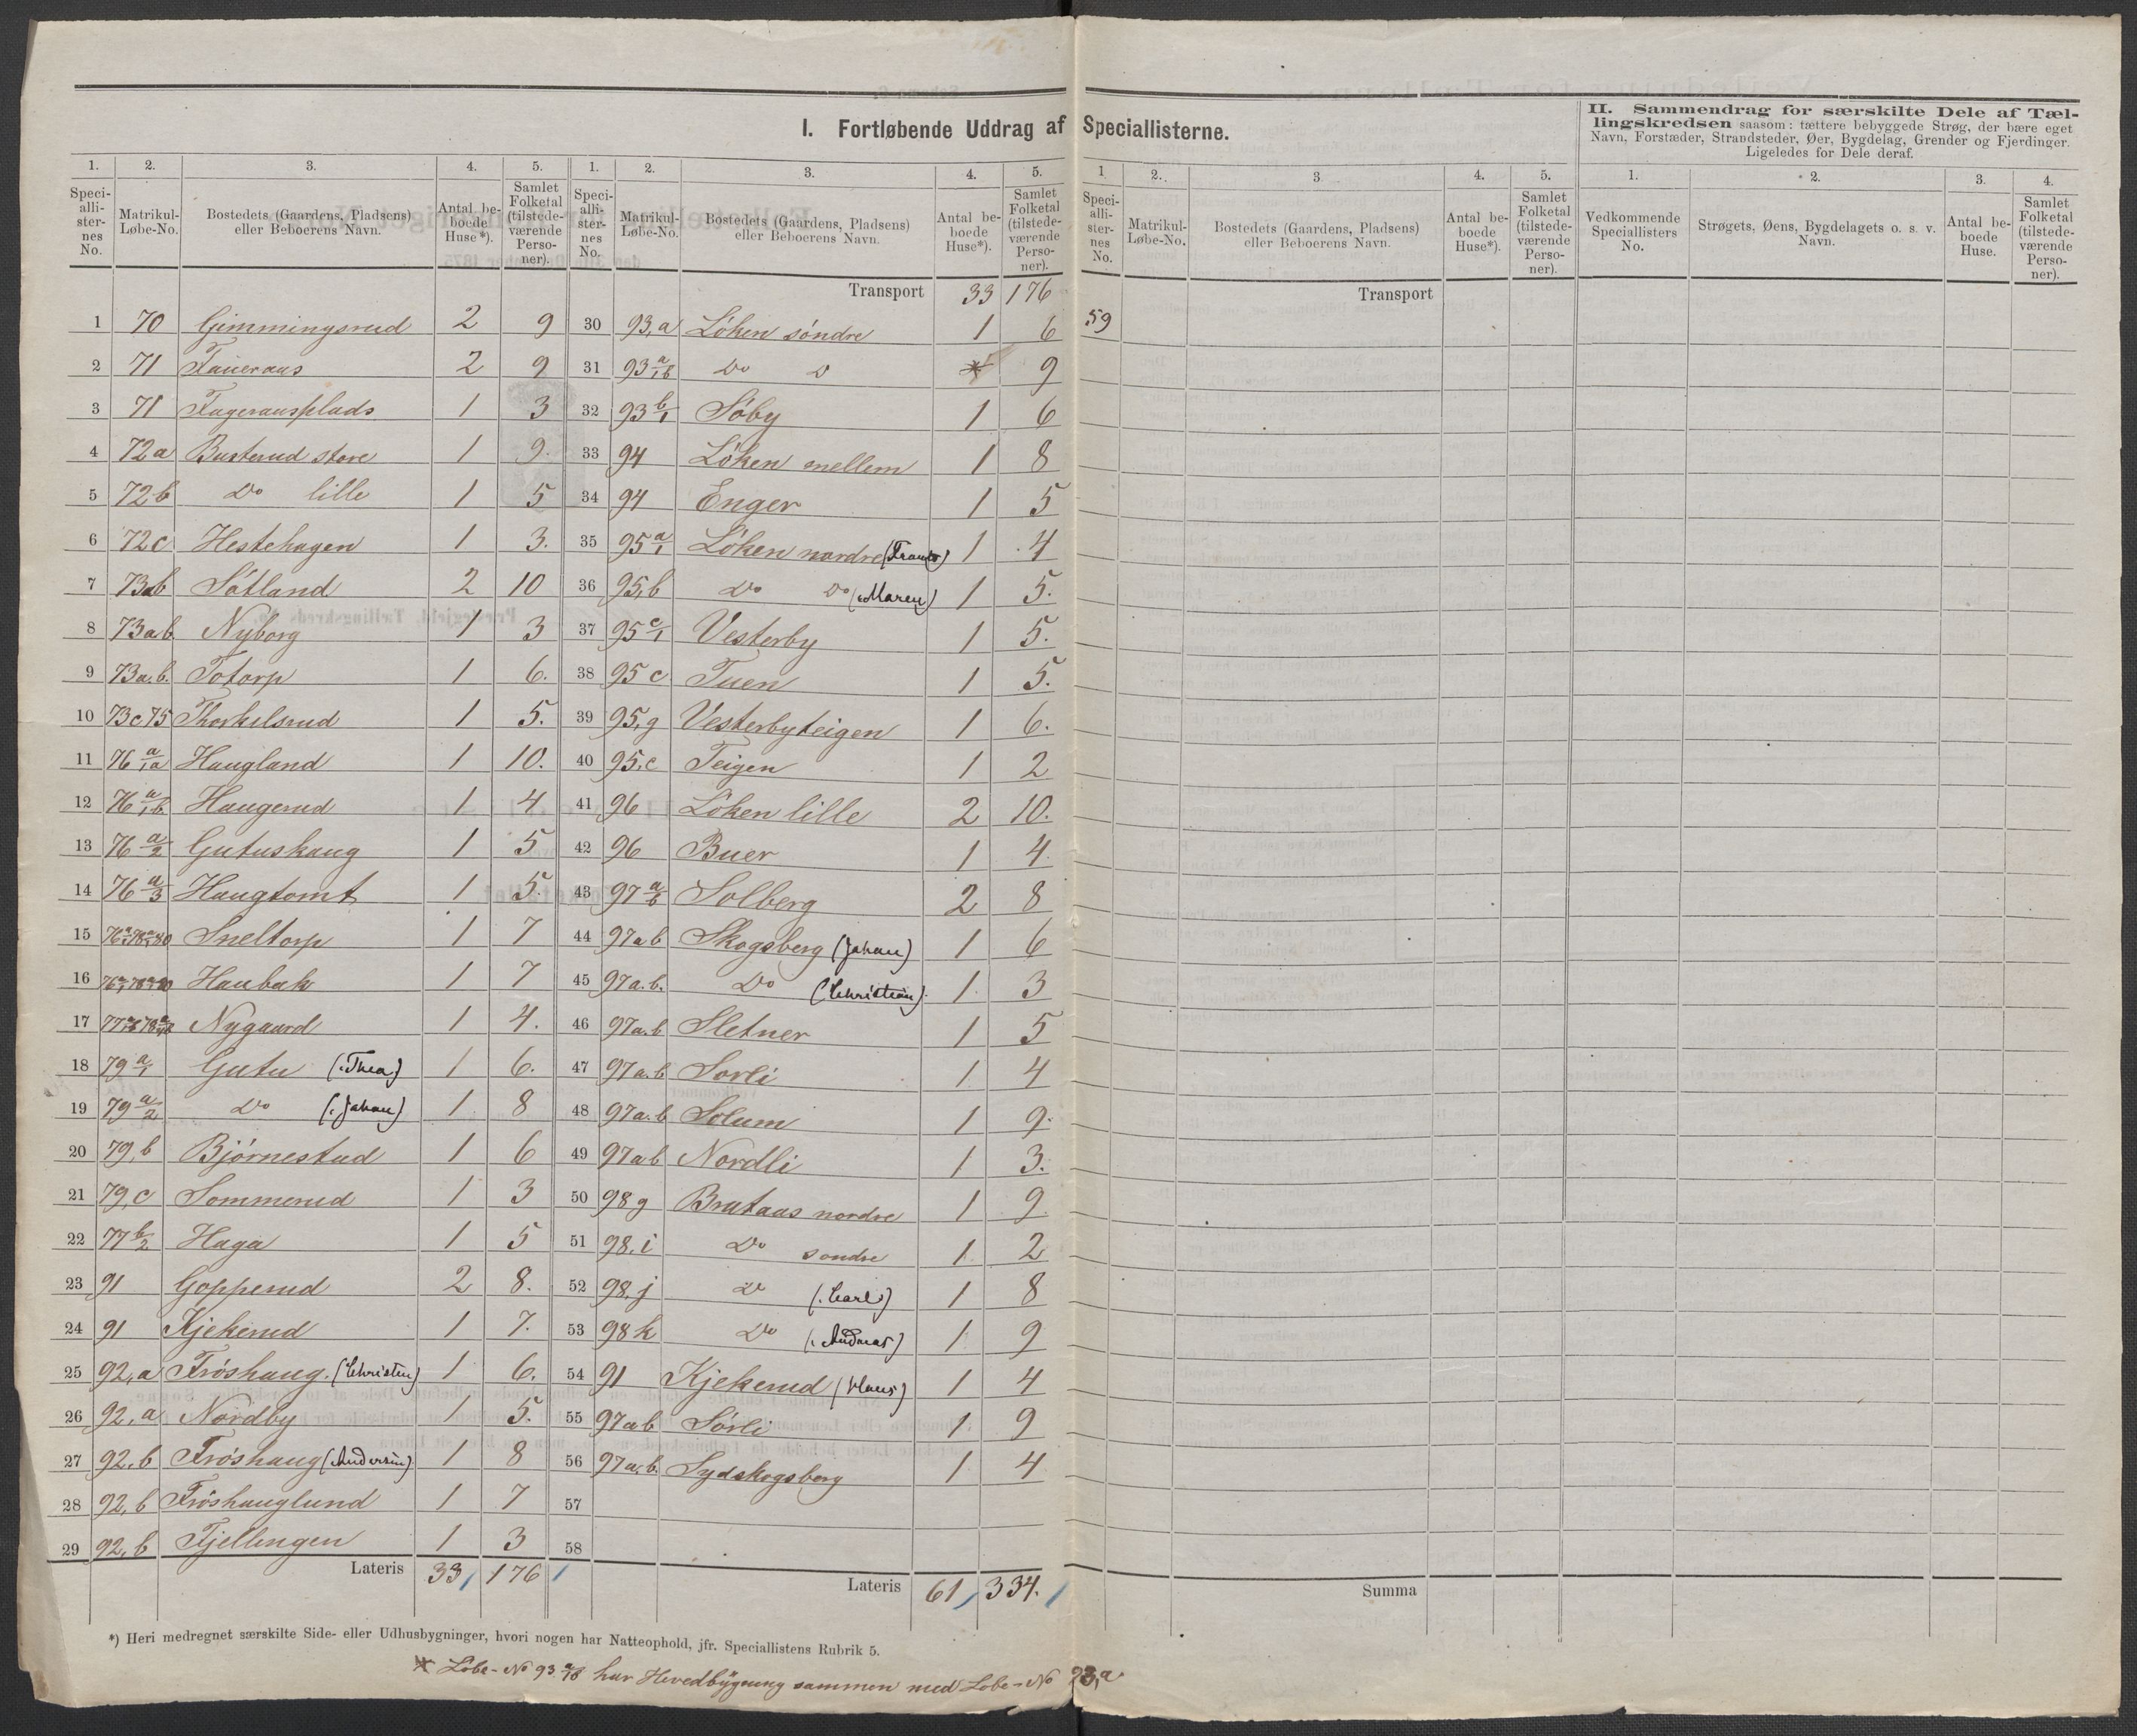 I. Fortløbende Uddrag af Speciallisterne.
1. 2. 3. 4. 5.
Speciallisternes No. Matrikul-Løbe-No. Bostedets (Gaardens, Pladsens) eller Beboerens Navn. Antal beboede Huse*). Samlet Folketal (tilstedeværende Personer).
1 70 Gimmingsrud 2 9
2 71 Faueraas 2 9
3 71 Fageraasplads 1 3
4 72a Busterud store 1 9.
5 72b Do lille 1 5
6 72c Hestehagen 1 3.
7 73ab Sötland 2 10
8 73ab Nyborg 1 3
9 73a.b. Totorp 1 6.
10 73c75 Thorkilsrud 1 5.
11 76 a/1a Haugland 1 10.
12 76 a/1b Haugerud 1 4
13 76 a/2 Gutushaug 1 5
14 76 a/3 Haugtomt 1 5.
15 Sneltorp 1 7
16 Haubak 1 7
17 Nygaard 1 4.
18 79 a/1 Gutu (Thea) 1 6.
19 79 a/2 Do (Johan) 1 8
20 79,b Björnestad 1 6
21 79,c Sommerud 1 3
22 77 b/2 Haga 1 5
23 91 Gopperud 2 8.
24 91 Kjekerud 1 7.
25 92,a Fröshaug. (Christen) 1 6.
26 92,a Nordby 1 5.
27 92,b Fröshaug (Andersen) 1 8
28 92,b Fröshauglund 1 7
29 92,b Fjellengen 1 3
Lateris 33 176
1. 2. 3. 4. 5.
Speciallisternes No. Matrikul-Løbe-No. Bostedets (Gaardens, Pladsens) eller Beboerens Navn. Antal beboede Huse*). Samlet Folketal (tilstedeværende Personer).
Transport 33 176
30 93,a Löken söndre 1 6
31 93 a/1b Do D * 9
32 93 b/1 Söby 1 6
33 94 Löken mellem 1 8
34 94 Enger 1 5
35 95 a/1 Löken nordre 1 4
36 95,b Do Do (Maren) 1 5.
37 95 c/1 Vesterby 1 5.
38 95 c Tuen 1 5.
39 95,g Vesterbyteigen 1 6.
40 95,c Teigen 1 2
41 96 Löken lille 2 10.
42 96 Buer 1 4
43 97 a/b Solberg 2 8
44 97ab Skogsberg (Johan) 1 6
45 97a.b. Do (Christian) 1 3
46 97a.b Sletner 1 5
47 97a.b Sorli 1 4
48 97a.b Solum 1 9.
49 97ab Nordli 1 3.
50 98g Brataas nordre 1 9
51 98,i Do sondre 1 2
52 98,j D (Carl) 1 8
53 98k Do (Andreas) 1 9
54 91 Kjekerud (Claus) 1 4
55 97ab Sörli 1 9
56 97a,b. Sydskogsberg 1 4
57
58
Lateris 61 334.
1 2. 3 4. 5.
Speciallisternes No. Matrikul-Løbe-No. Bostedets (Gaardens, Pladsens) eller Beboerens Navn. Antal beboede Huse*). Samlet Folketal (tilstedeværende Personer).
Transport
59
Summa
II. Sammendrag for særskilte Dele af Tællingskredsen saasom: tættere bebyggede Strøg, der bære eget
Navn, Forstæder, Strandsteder, Øer, Bygdelag, Grender og Fjerdinger.
Ligeledes for Dele deraf.
1. 2. 3. 4.
Vedkommende Speciallisters No. Strøgets, Øens, Bygdelagets o. s. v. Navn. Antal beboede Huse. Samlet Folketal (tilstedeværende Personer).
*) Heri medregnet særskilte Side- eller Udhusbygninger, hvori nogen har Natteophold, jfr. Speciallistens Rubrik 5.
* Löbe-No 93 a/1b har Hovedbygning sammen med Löbe-No 93,a